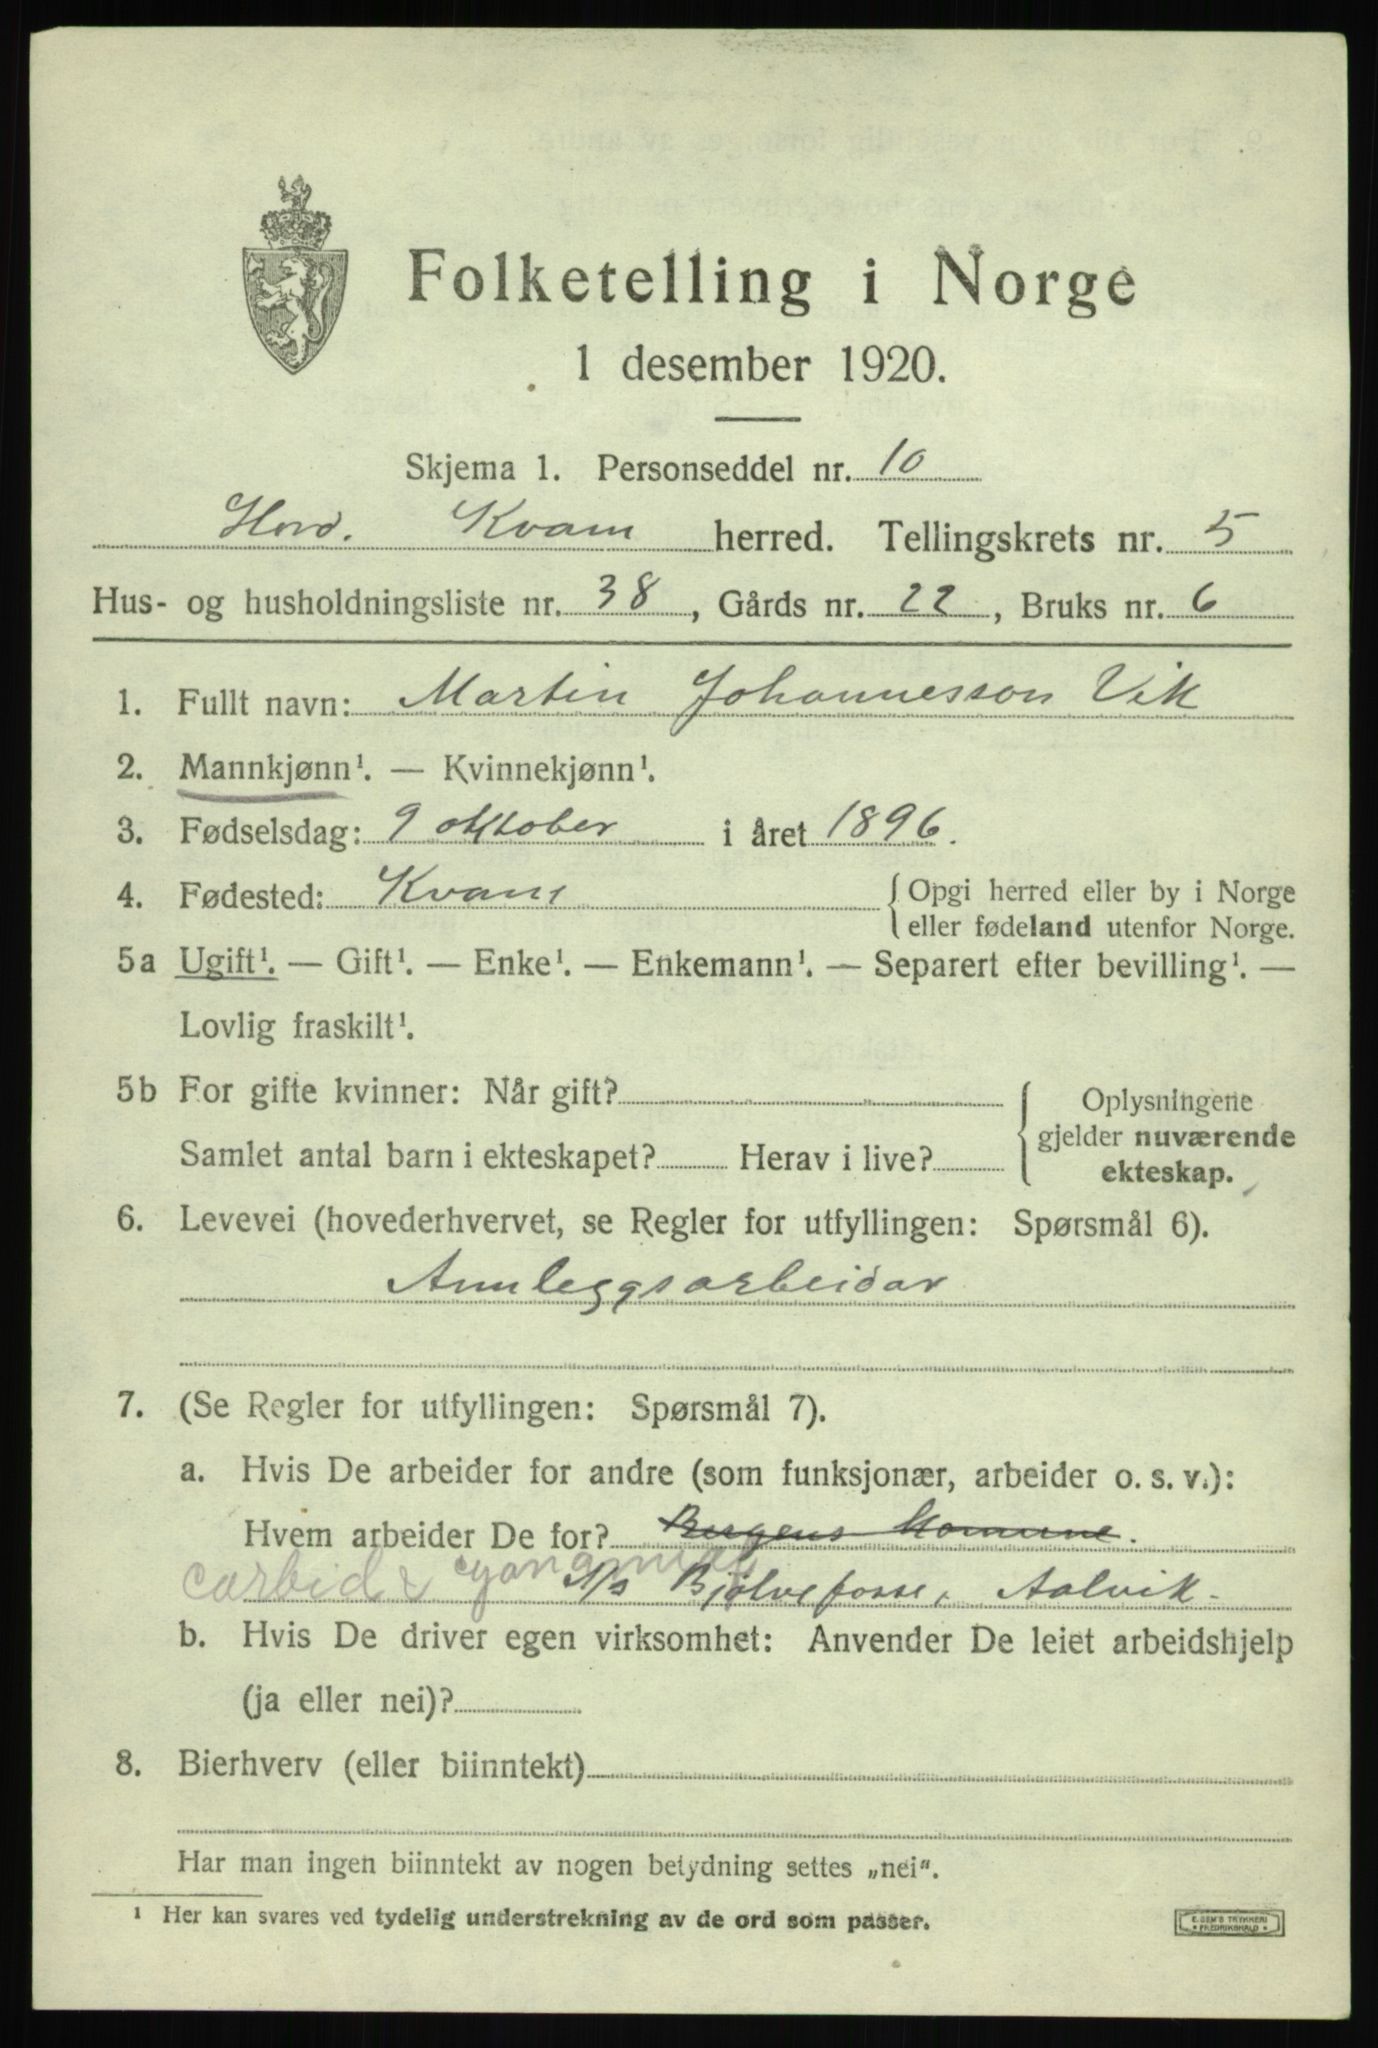 Folketelling i Norge
1 desember 1920.
Skjema 1. Personseddel nr. 10
Hord. Kvam herred. Tellingskrets nr. 5
Hus- og husholdningsliste nr. 38, Gårds nr. 22, Bruks nr. 6
1. Fullt navn: Martin Johannesson Vik
2. Mannkjønn¹. — Kvinnekjønn¹.
3. Fødselsdag: 9 oktober i året 1896.
4. Fødested: Kvam { Opgi herred eller by i Norge
eller fødeland utenfor Norge.
5a Ugift¹. — Gift¹. — Enke¹. — Enkemann¹. — Separert efter bevilling¹. —
Lovlig fraskilt¹.
5b For gifte kvinner: Når gift? { Oplysningene
gjelder nuværende
Samlet antal barn i ekteskapet? Herav i live?
ekteskap.
6. Levevei (hovederhvervet, se Regler for utfyllingen: Spørsmål 6).
Annleggsarbeidar
7. (Se Regler for utfyllingen: Spørsmål 7).
a. Hvis De arbeider for andre (som funksjonær, arbeider o. s. v.):
Hvem arbeider De for? Bergens Komune.
carbid & cyanamid
A/s Bjølvefosse, Aalvik.
b. Hvis De driver egen virksomhet: Anvender De leiet arbeidshjelp
(ja eller nei)?
8. Bierhverv (eller biinntekt)
Har man ingen biinntekt av nogen betydning settes „nei“.
¹ Her kan svares ved tydelig understrekning av de ord som passer.
E. SEM'S TRYKKERI
* FREDRIKSHALD *